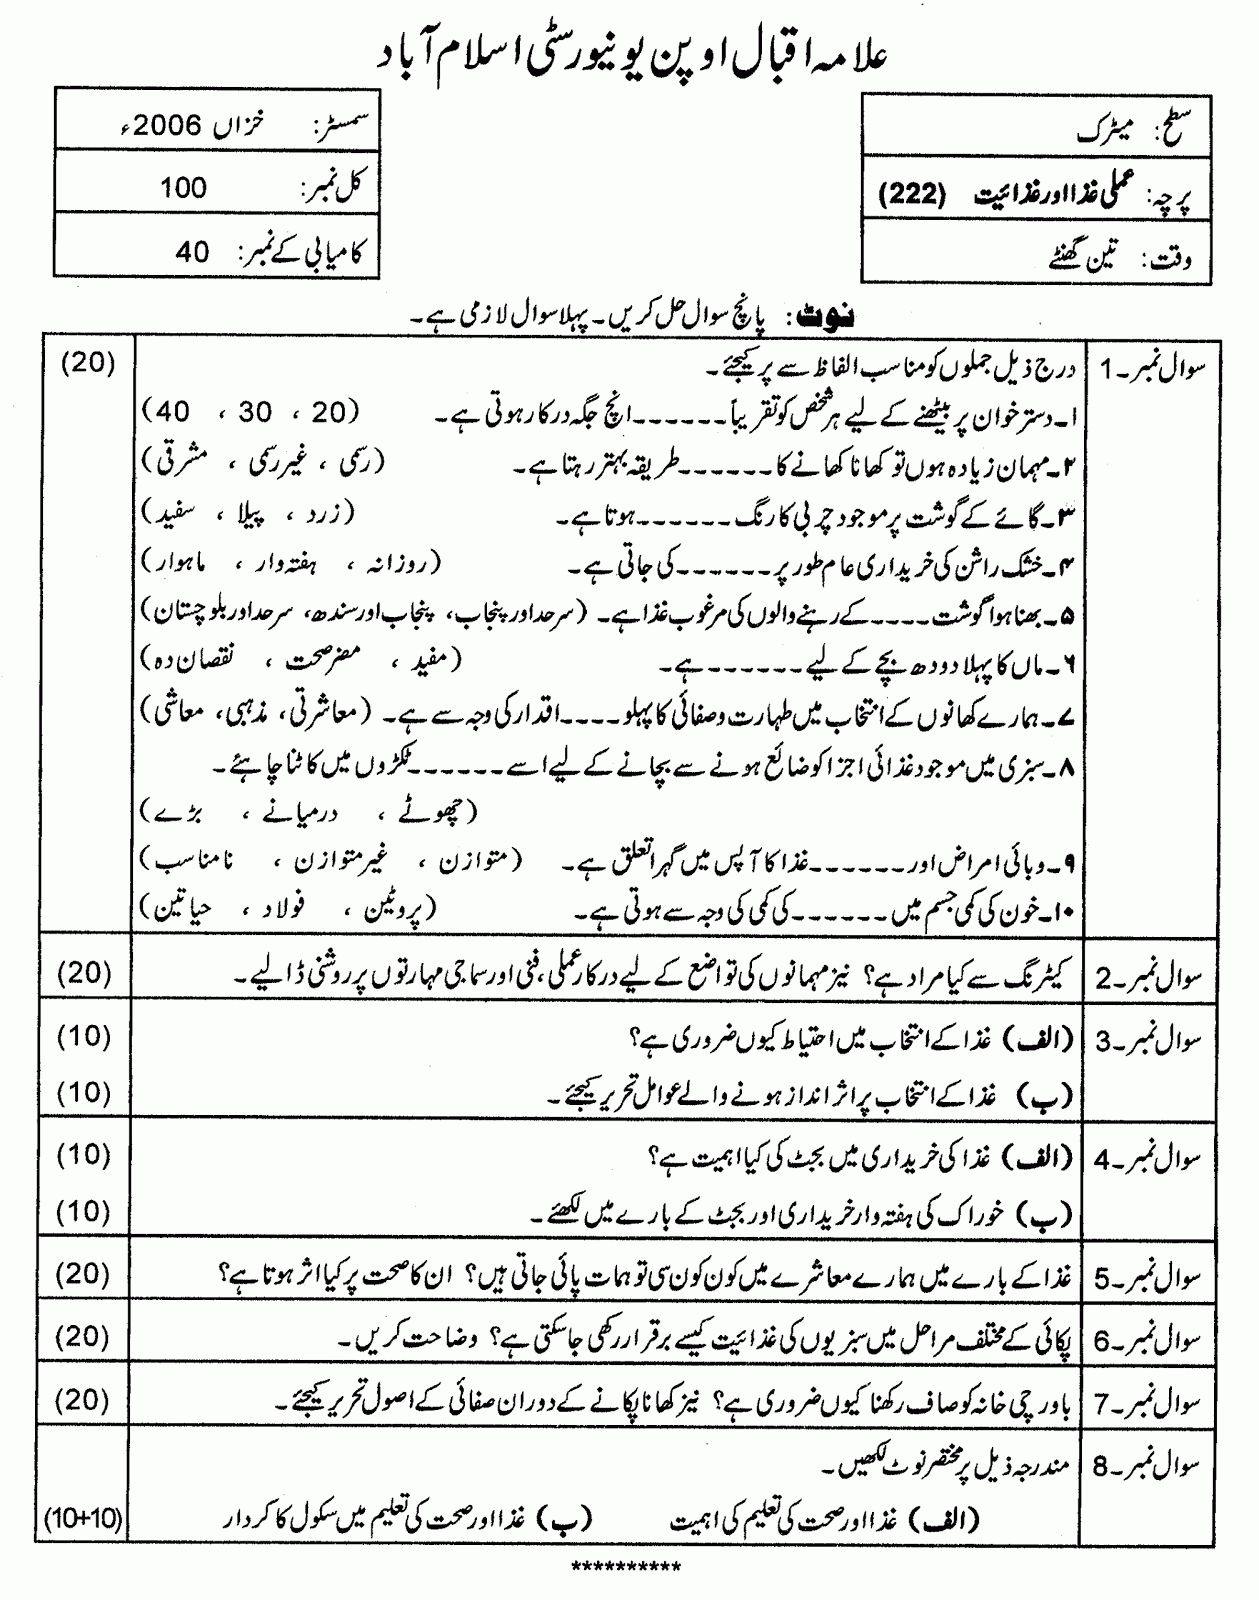 علامہ اقبال اوپن یونیورسٹی اسلام آباد
سطح: میٹرک
پرچہ: عملی غذا اور غذائیت (222)
وقت: تین گھنٹے
سمسٹر: خزاں 2006ء
کل نمبر: 100
کامیابی کے نمبر: 40
نوٹ: پانچ سوال حل کریں۔ پہلا سوال لازمی ہے۔
سوال نمبر۔1 درج ذیل جملوں کو مناسب الفاظ سے پر کیجئے۔ (20)
۱۔ دسترخوان پر بیٹھنے کے لیے ہر شخص کو تقریباً ۔۔۔۔۔۔ انچ جگہ درکار ہوتی ہے۔ (20 ، 30 ، 40)
۲۔ مہمان زیادہ ہوں تو کھانا کھانے کا ۔۔۔۔۔۔ طریقہ بہتر رہتا ہے۔ (رسمی ، غیر رسمی ، مشرقی)
۳۔ گائے کے گوشت پر موجود چربی کا رنگ ۔۔۔۔۔۔ ہوتا ہے۔ (زرد ، پیلا ، سفید)
۴۔ خشک راشن کی خریداری عام طور پر ۔۔۔۔۔۔ کی جاتی ہے۔ (روزانہ ، ہفتہ وار ، ماہوار)
۵۔ بھنا ہوا گوشت ۔۔۔۔ کے رہنے والوں کی مرغوب غذا ہے۔ (سرحد اور پنجاب، پنجاب اور سندھ، سرحد اور بلوچستان)
۶۔ ماں کا پہلا دودھ بچے کے لیے ۔۔۔۔۔۔ ہے۔ (مفید ، مضر صحت ، نقصان دہ)
۷۔ ہمارے کھانوں کے انتخاب میں طہارت و صفائی کا پہلو ۔۔۔۔ اقدار کی وجہ سے ہے۔ (معاشرتی، مذہبی، معاشی)
۸۔ سبزی میں موجود غذائی اجزا کو ضائع ہونے سے بچانے کے لیے اسے ۔۔۔۔۔۔ ٹکڑوں میں کاٹنا چاہئے۔
(چھوٹے ، درمیانے ، بڑے)
۹۔ وبائی امراض اور ۔۔۔۔۔۔ غذا کا آپس میں گہرا تعلق ہے۔ (متوازن ، غیر متوازن ، نامناسب)
۱۰۔ خون کی کمی جسم میں ۔۔۔۔۔۔ کی کمی کی وجہ سے ہوتی ہے۔ (پروٹین ، فولاد ، حیاتین)
سوال نمبر۔2 کیٹرنگ سے کیا مراد ہے؟ نیز مہمانوں کی تواضع کے لیے درکار عملی، فنی اور سماجی مہارتوں پر روشنی ڈالیے۔ (20)
سوال نمبر۔3 (الف) غذا کے انتخاب میں احتیاط کیوں ضروری ہے؟ (10)
(ب) غذا کے انتخاب پر اثر انداز ہونے والے عوامل تحریر کیجئے۔ (10)
سوال نمبر۔4 (الف) غذا کی خریداری میں بجٹ کی کیا اہمیت ہے؟ (10)
(ب) خوراک کی ہفتہ وار خریداری اور بجٹ کے بارے میں لکھئے۔ (10)
سوال نمبر۔5 غذا کے بارے میں ہمارے معاشرے میں کون کون سی توہمات پائی جاتی ہیں؟ ان کا صحت پر کیا اثر ہوتا ہے؟ (20)
سوال نمبر۔6 پکائی کے مختلف مراحل میں سبزیوں کی غذائیت کیسے برقرار رکھی جاسکتی ہے؟ وضاحت کریں۔ (20)
سوال نمبر۔7 باورچی خانہ کو صاف رکھنا کیوں ضروری ہے؟ نیز کھانا پکانے کے دوران صفائی کے اصول تحریر کیجئے۔ (20)
سوال نمبر۔8 مندرجہ ذیل پر مختصر نوٹ لکھیں۔
(الف) غذا اور صحت کی تعلیم کی اہمیت (ب) غذا اور صحت کی تعلیم میں سکول کا کردار (10+10)
**********